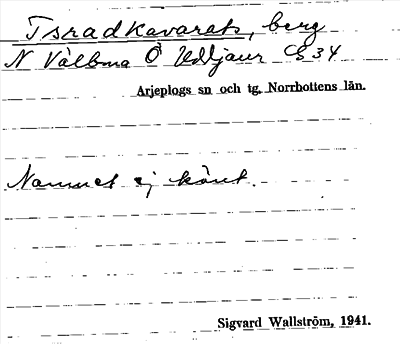 Tsradkavarats, berg
N Välbma Ö Uddjaur C§34
Arjeplogs sn och tg, Norrbottens län.
Namnet ej känt.
Sigvard Wallström, 1941.